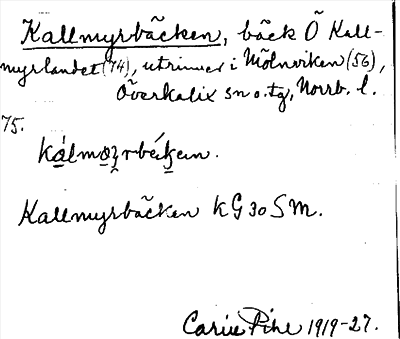 Kallmyrbäcken, bäck Ö Kall-
myrlandet (74), utrinner i Mölnviken (56),
Överkalix sn o. tg, Norrb. l.
75.
Kallmyrbäcken kG 30 S M.
Carin Pihl 1919-27.